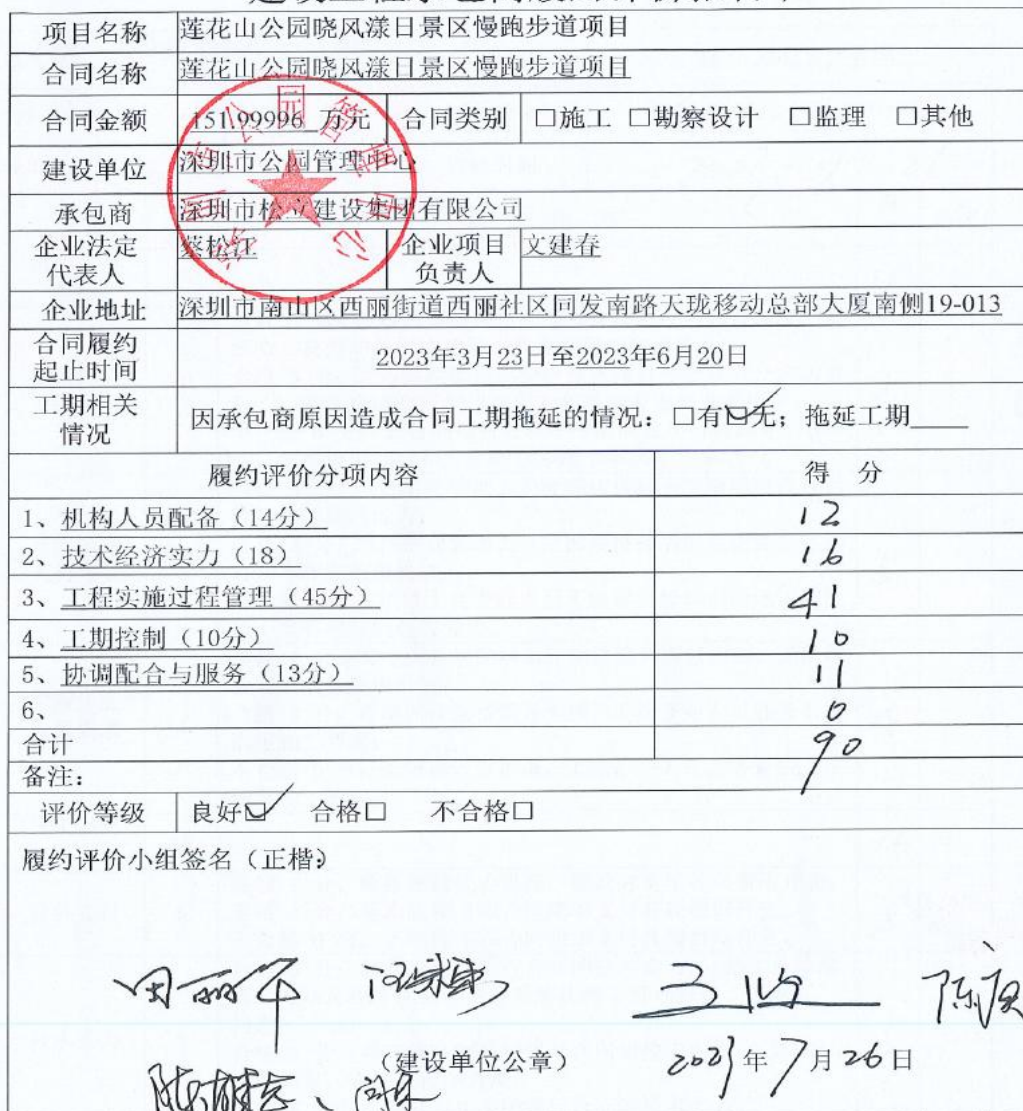 项目名称 莲花山公园晓风漾日景区慢跑步道项目
合同名称 莲花山公园晓风漾日景区慢跑步道项目
合同金额 151.99996 万元 合同类别 □施工 □勘察设计 □监理 □其他
建设单位 深圳市公园管理中心
承包商 深圳市松立建设集团有限公司
企业法定代表人 蔡松江 企业项目负责人 文建春
企业地址 深圳市南山区西丽街道西丽社区同发南路天珑移动总部大厦南侧19-013
合同履约起止时间 2023年3月23日至2023年6月20日
工期相关情况 因承包商原因造成合同工期拖延的情况：□有☑无；拖延工期____
履约评价分项内容 得 分
1、机构人员配备（14分） 12
2、技术经济实力（18） 16
3、工程实施过程管理（45分） 41
4、工期控制（10分） 10
5、协调配合与服务（13分） 11
6、 0
合计 90
备注：
评价等级 良好☑ 合格□ 不合格□
履约评价小组签名（正楷）
（建设单位公章） 2023年7月26日